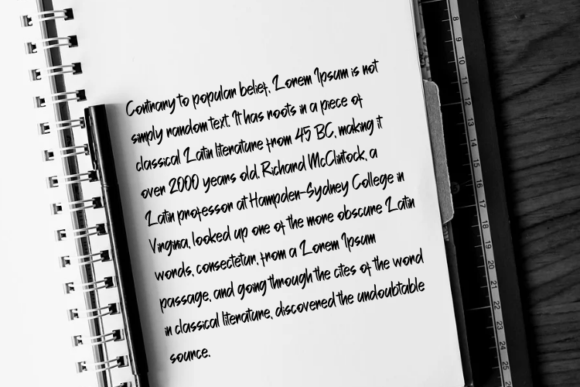 Contrary to popular belief, Lorem Ipsum is not
simply random text. It has roots in a piece of
classical Latin literature from 45 BC, making it
over 2000 years old. Richard McClintock, a
Latin professor at Hampden-Sydney College in
Virginia, looked up one of the more obscure Latin
words, consectetur, from a Lorem Ipsum
passage, and going through the cites of the word
in classical literature, discovered the undoubtable
source.